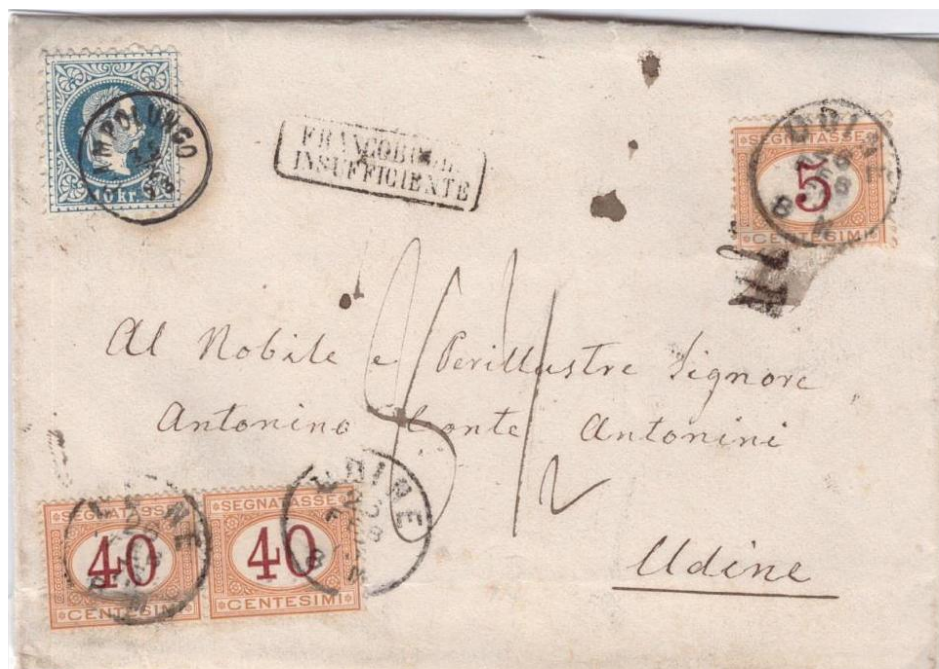 10 kr.
FRANCOBOLLO
INSUFFICIENTE
SEGNATASSE
5
CENTESIMI
UDINE
Al Nobile e Perillustre Signore
Antonino Conte Antonini
Udine
SEGNATASSE SEGNATASSE
40 40
CENTESIMI CENTESIMI
UDINE UDINE